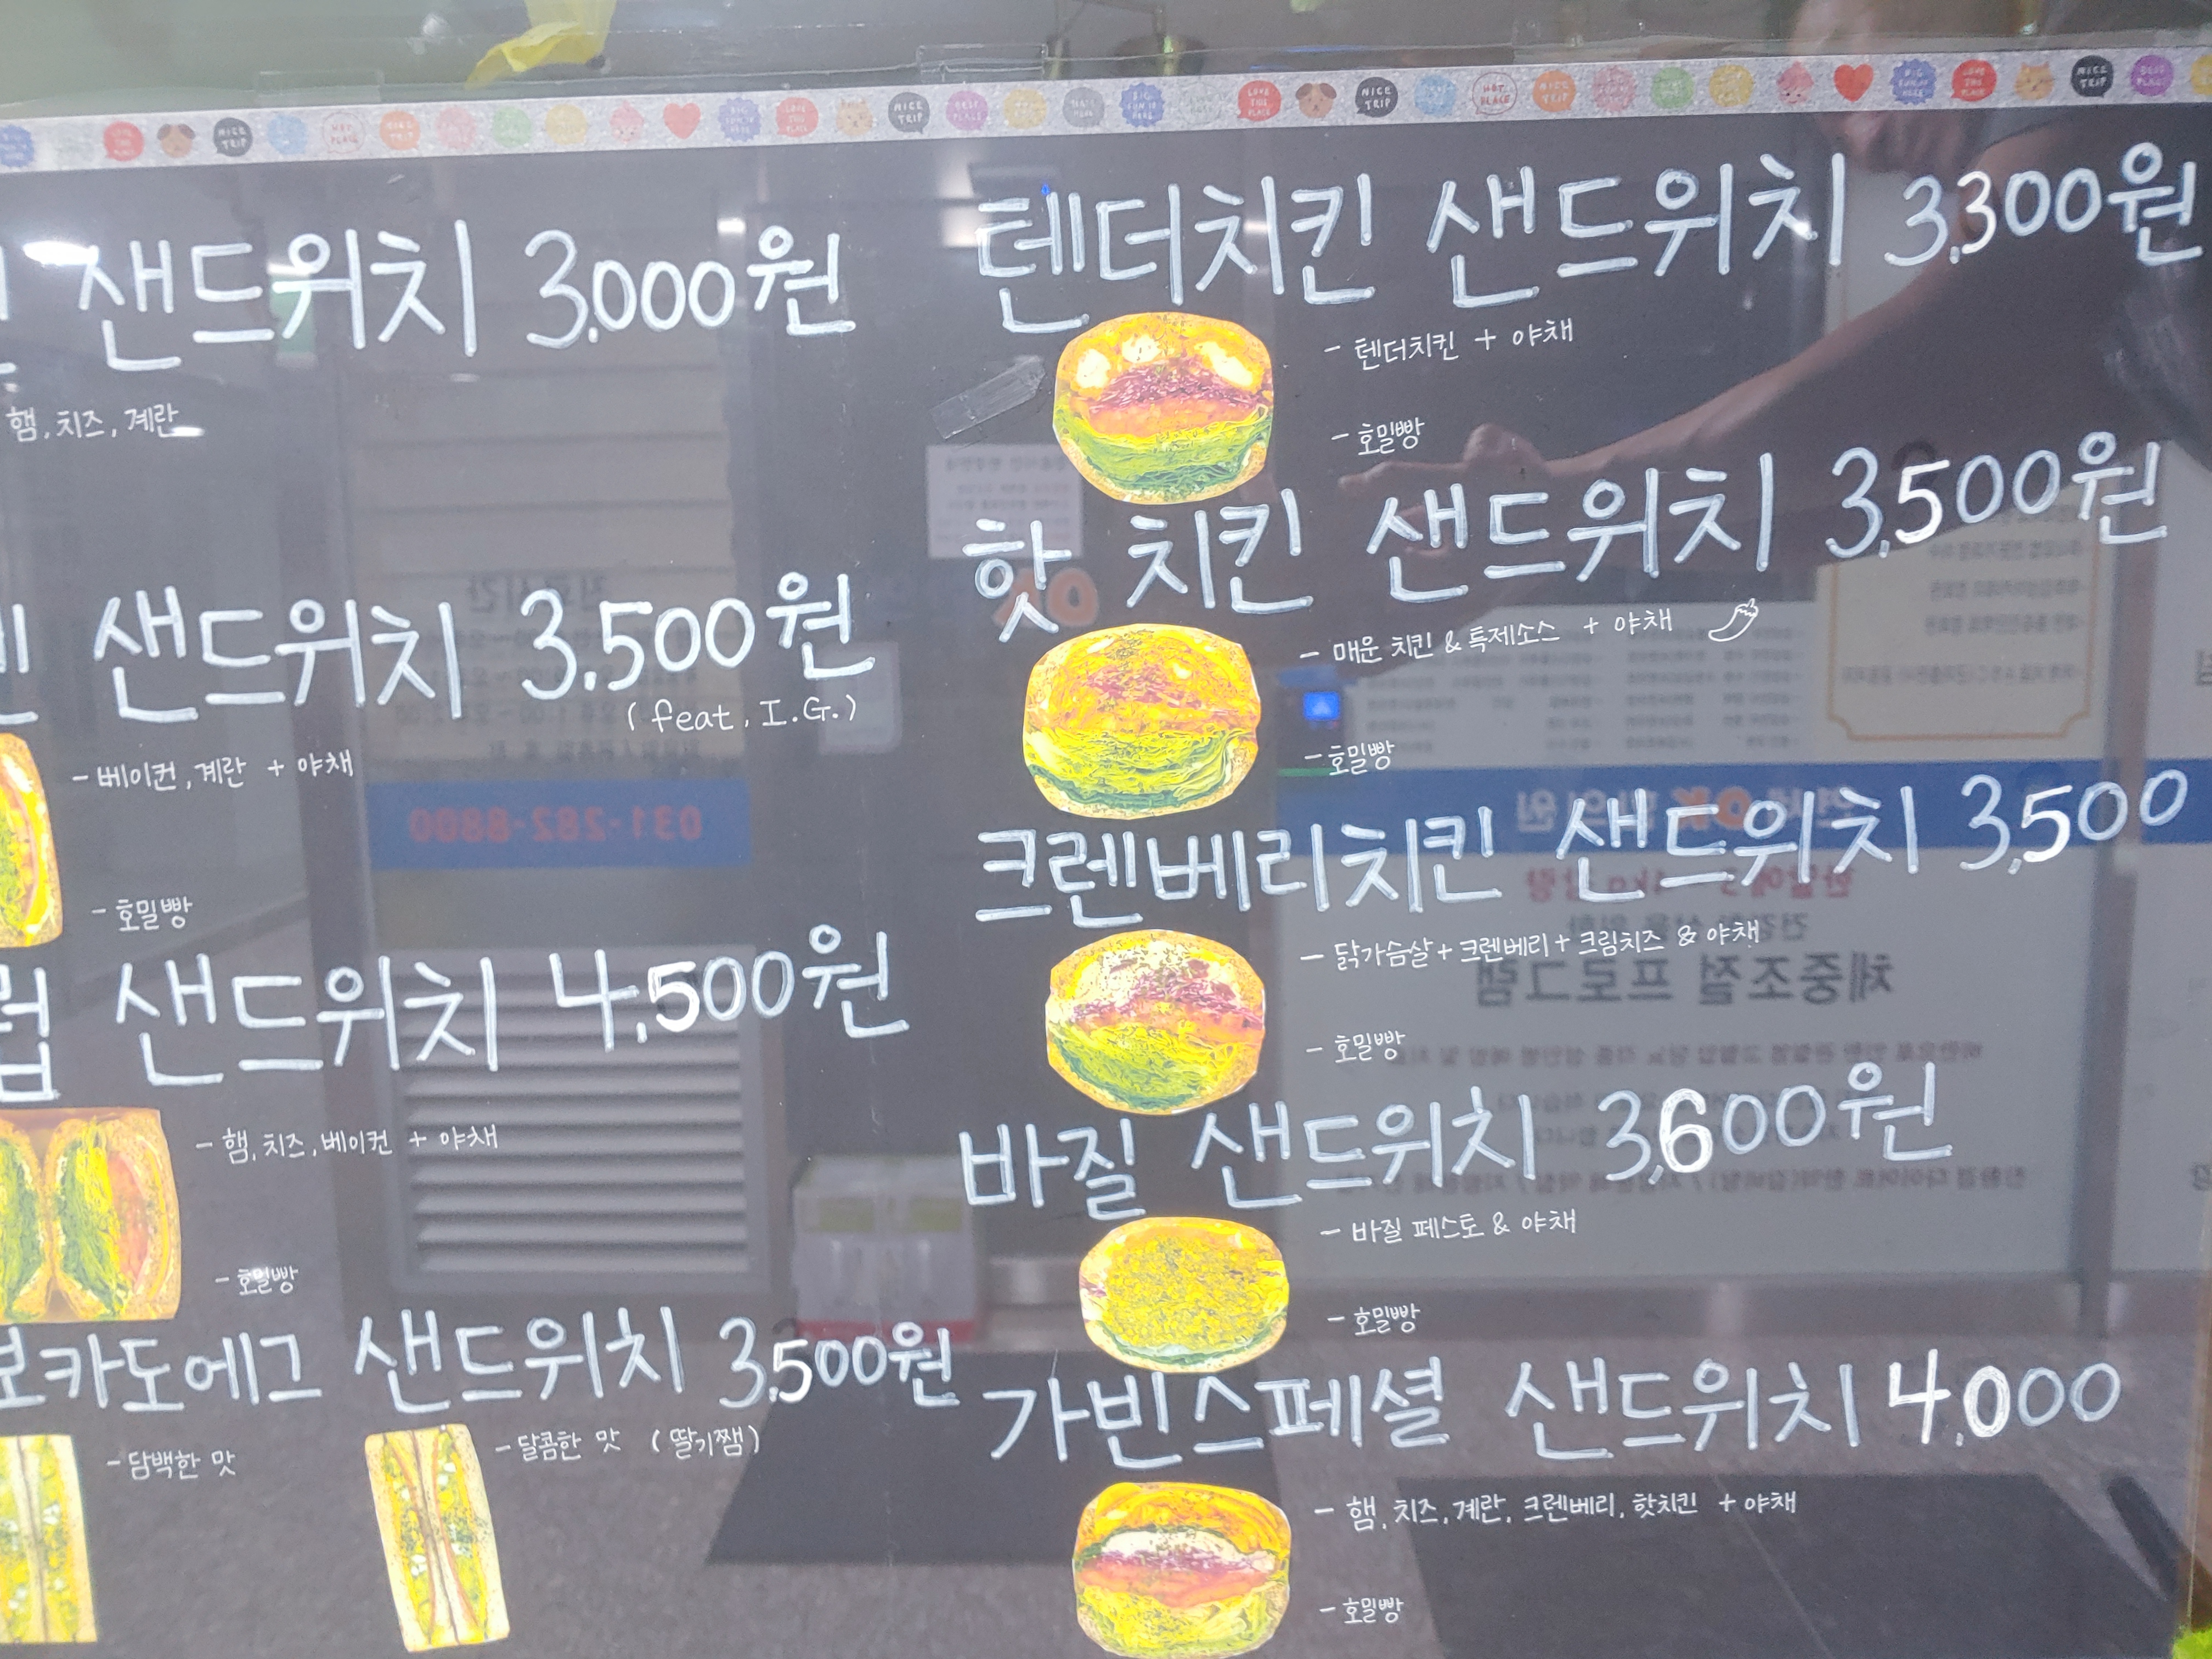 샌드위치 3,000원
햄, 치즈, 계란
샌드위치 3,500원
(feat. I.G.)
- 베이컨, 계란 + 야채
- 호밀빵
럽 샌드위치 4,500원
- 햄, 치즈, 베이컨 + 야채
- 호밀빵
보카도에그 샌드위치 3,500원
- 담백한 맛
- 달콤한 맛 (딸기쨈)
텐더치킨 샌드위치 3,300원
- 텐더치킨 + 야채
- 호밀빵
핫 치킨 샌드위치 3,500원
- 매운 치킨 & 특제소스 + 야채
- 호밀빵
크렌베리치킨 샌드위치 3,500
- 닭가슴살 + 크렌베리 + 크림치즈 & 야채
- 호밀빵
바질 샌드위치 3,600원
- 바질 페스토 & 야채
- 호밀빵
가빈스페셜 샌드위치 4,000
- 햄, 치즈, 계란, 크렌베리, 핫치킨 + 야채
- 호밀빵